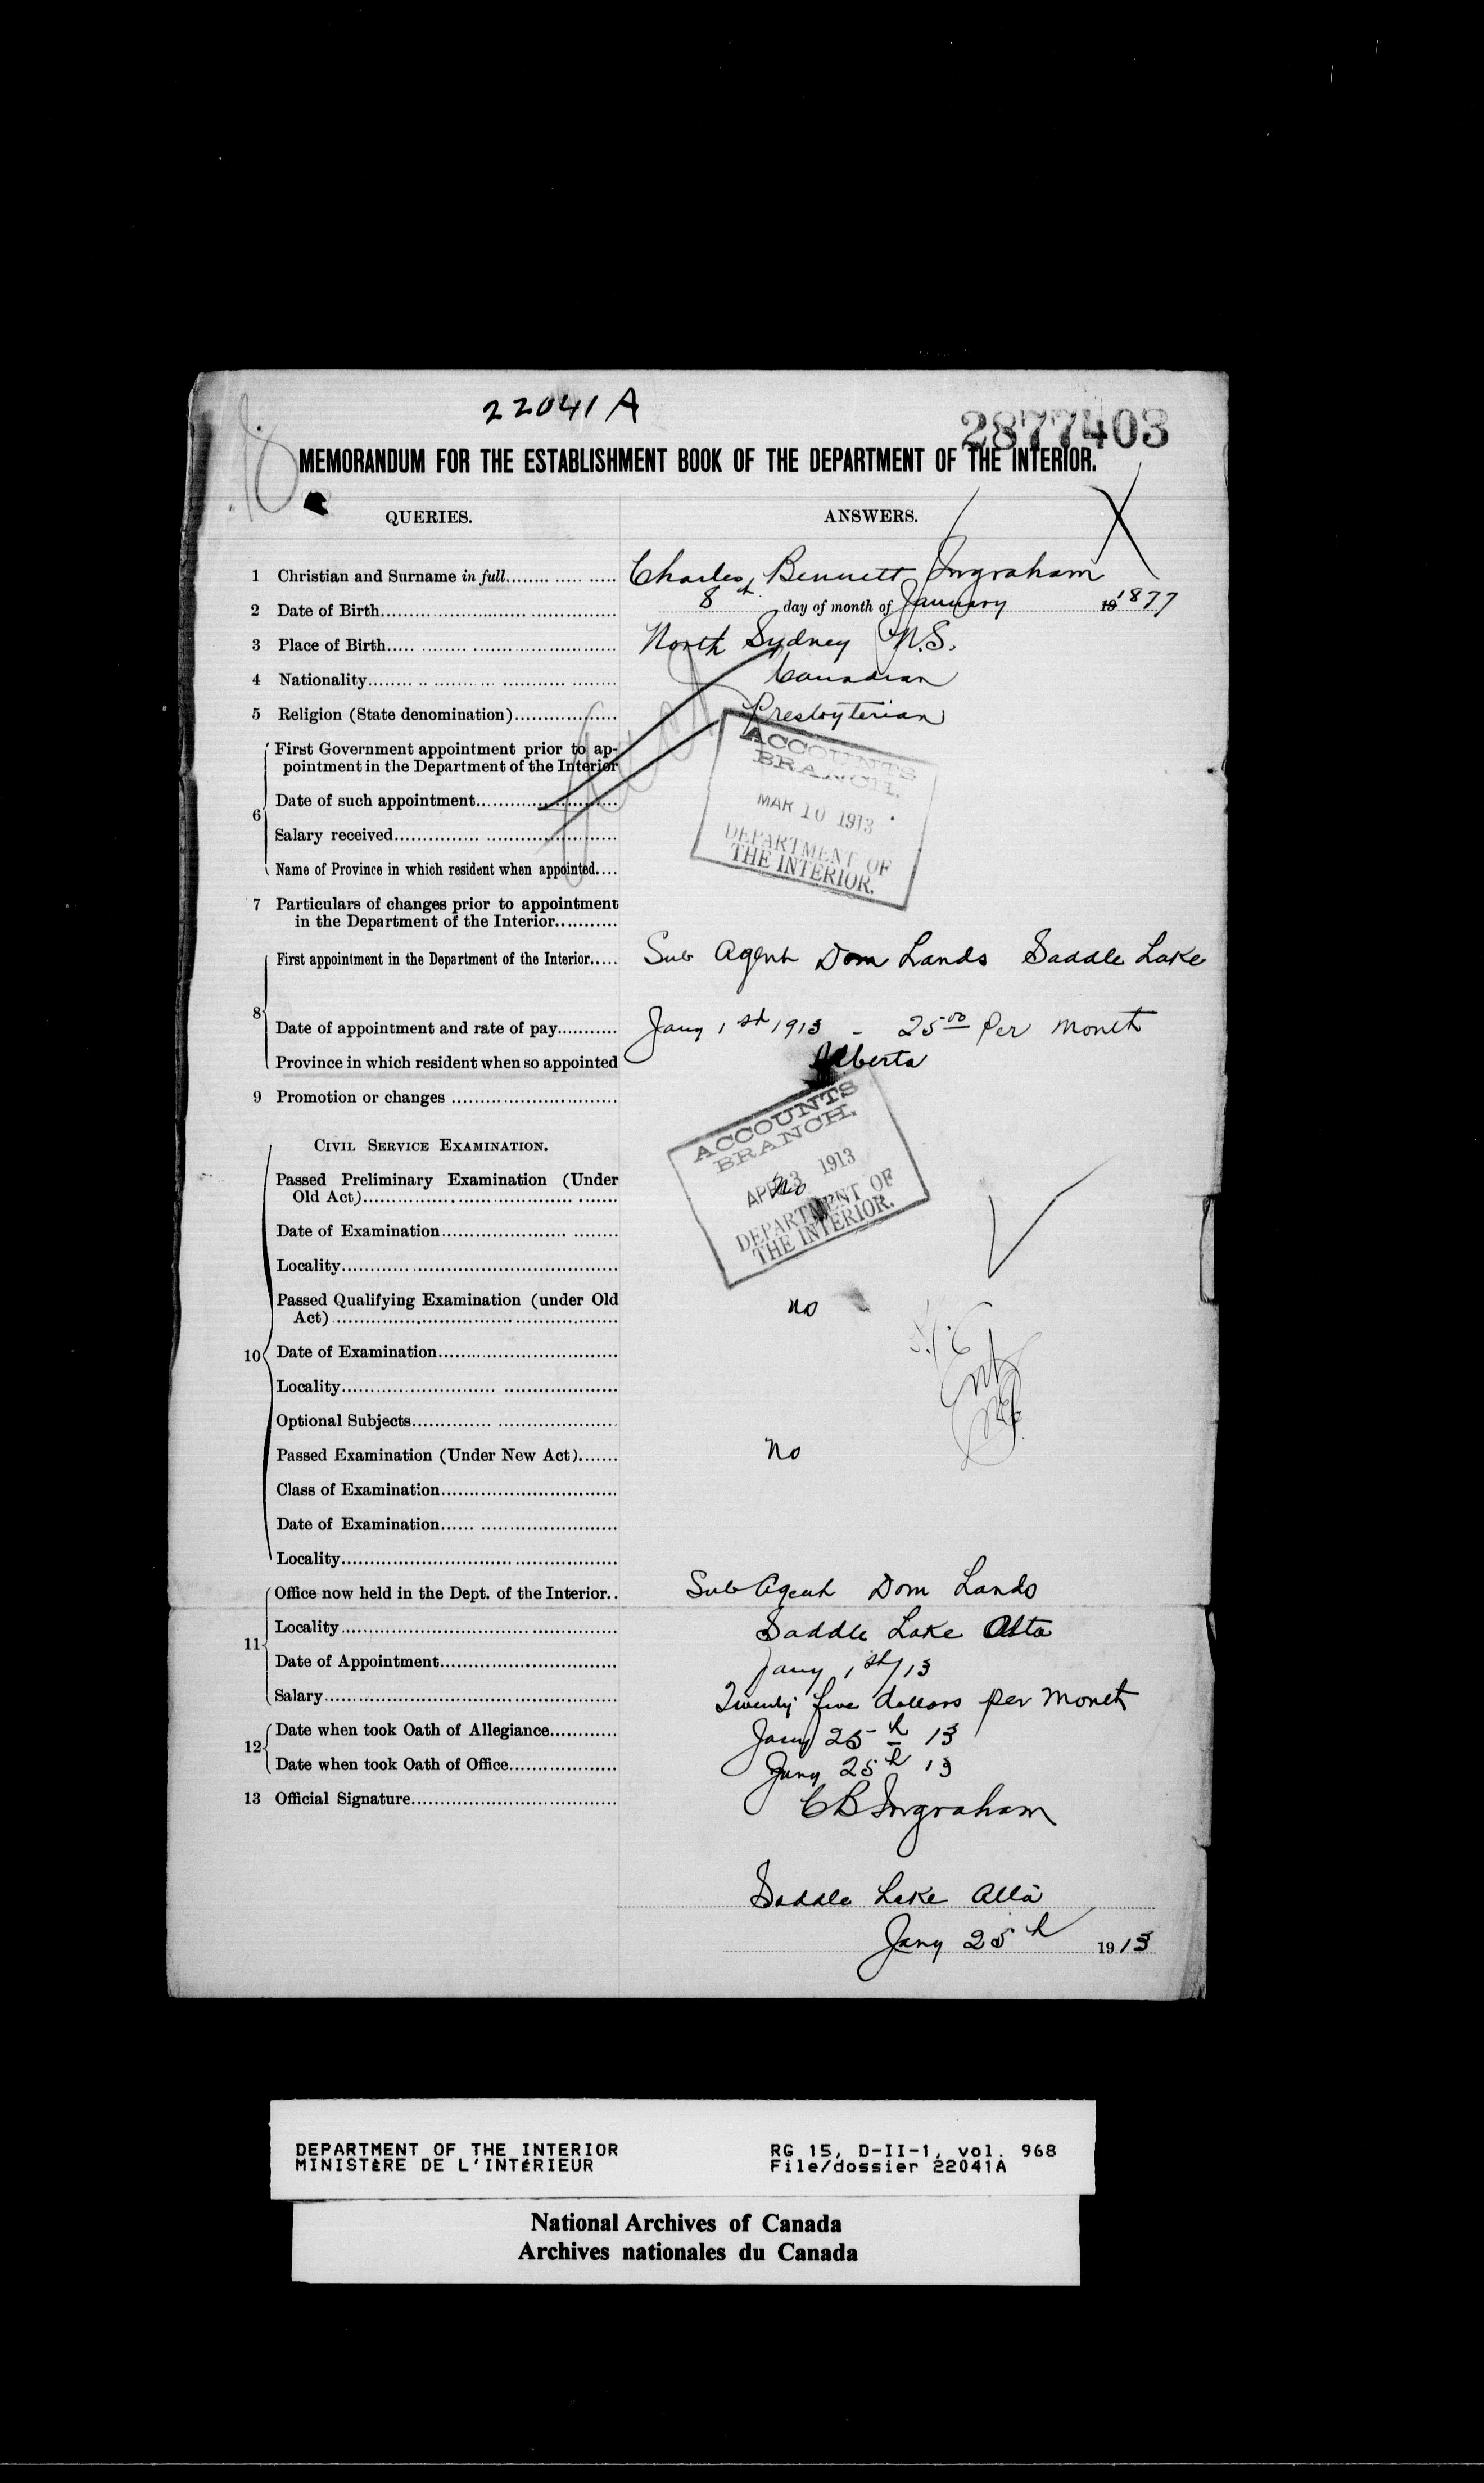 22041 A
2877403
MEMORANDUM FOR THE ESTABLISHMENT BOOK OF THE DEPARTMENT OF THE INTERIOR.
QUERIES. ANSWERS.
1 Christian and Surname in full Charles Bennett Ingraham
2 Date of Birth 8th day of month of January 19 1877
3 Place of Birth North Sydney N.S.
4 Nationality Canadian
5 Religion (State denomination) Presbyterian
6 First Government appointment prior to ap-
pointment in the Department of the Interior
Date of such appointment
Salary received
Name of Province in which resident when appointed
ACCOUNTS
BRANCH.
MAR 10 1913
DEPARTMENT OF
THE INTERIOR.
7 Particulars of changes prior to appointment
in the Department of the Interior
8 First appointment in the Department of the Interior Sub Agent Dom Lands Saddle Lake
Date of appointment and rate of pay Jany 1st 1913 - 25.00 per month
Province in which resident when so appointed Alberta
9 Promotion or changes
ACCOUNTS
BRANCH.
APR 3 1913
DEPARTMENT OF
THE INTERIOR.
CIVIL SERVICE EXAMINATION.
10 Passed Preliminary Examination (Under
Old Act) No
Date of Examination
Locality
Passed Qualifying Examination (under Old
Act) no
Date of Examination
Locality
Optional Subjects
Passed Examination (Under New Act) no
Class of Examination
Date of Examination
Locality
11 Office now held in the Dept. of the Interior Sub Agent Dom Lands
Locality Saddle Lake Alta
Date of Appointment Jany 1st/13
Salary Twenty five dollars per month
12 Date when took Oath of Allegiance Jany 25th 13
Date when took Oath of Office Jany 25th 13
13 Official Signature C B Ingraham
Saddle Lake Alta
Jany 25th 1913
DEPARTMENT OF THE INTERIOR RG 15, D-II-1, vol. 968
MINISTÈRE DE L'INTÉRIEUR File/dossier 22041A
National Archives of Canada
Archives nationales du Canada